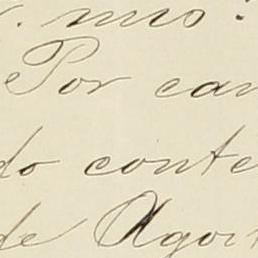 . mio:
Por can
do conte
de Agost